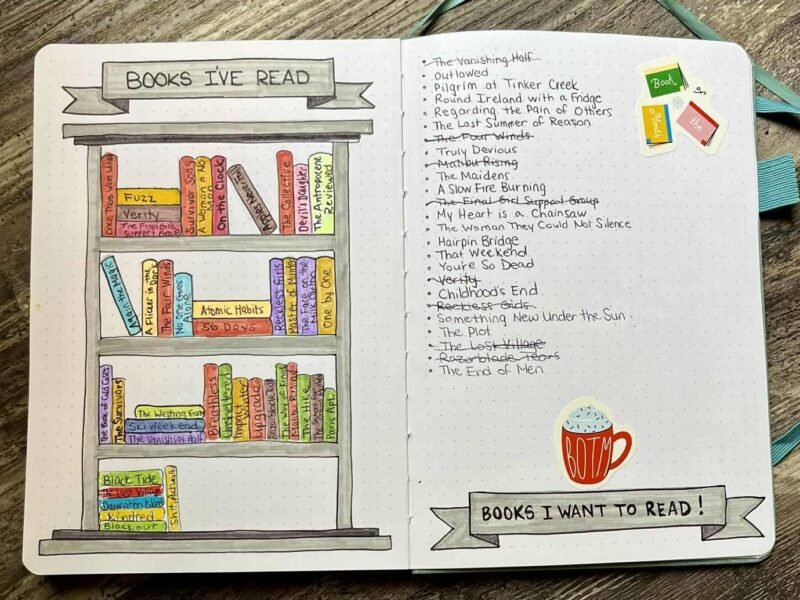 BOOKS I'VE READ
Once There Were Wolves
FUZZ
Verity
The Final Girl
Support Group
Survivor Song
A Woman is No
Man
On the Clock
Apples Never Fall
The Collective
Devil's Daughter
The Antropocene
Reviewed
Again the Magic
A Flicker in the
Dark
The Four Winds
No one Goes
Alone
Atomic Habits
56 Days
Reckless Girls
Master of Murder
The Face on the
Milk Carton
One by One
The Book of Cold Cases
The Survivors
The Westing Game
Ski Weekend
The Vanishing Half
Breathless
Unsheltered
Impostor
Upgrade
Razorblade Tears
Malibu Rising
The Hike
Paris Apt.
Black Tide
The Lost Village
Damnation Island
Kindred
Blackout
Shit, Actually
The Vanishing Half
Outlawed
Pilgrim at Tinker Creek
Round Ireland with a Fridge
Regarding the Pain of Others
The Last Summer of Reason
The Four Winds
Truly Devious
Malibu Rising
The Maidens
A Slow Fire Burning
The Final Girl Support Group
My Heart is a Chainsaw
The Woman They Could Not Silence
Hairpin Bridge
That Weekend
You're So Dead
Verity
Childhood's End
Reckless Girls
Something New Under the Sun
The Plot
The Lost Village
Razorblade Tears
The End of Men
Book
of
the
Month
BOTM
BOOKS I WANT TO READ!